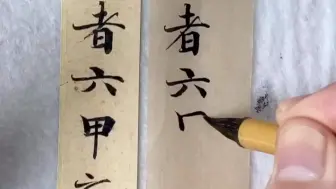 者六甲
者六